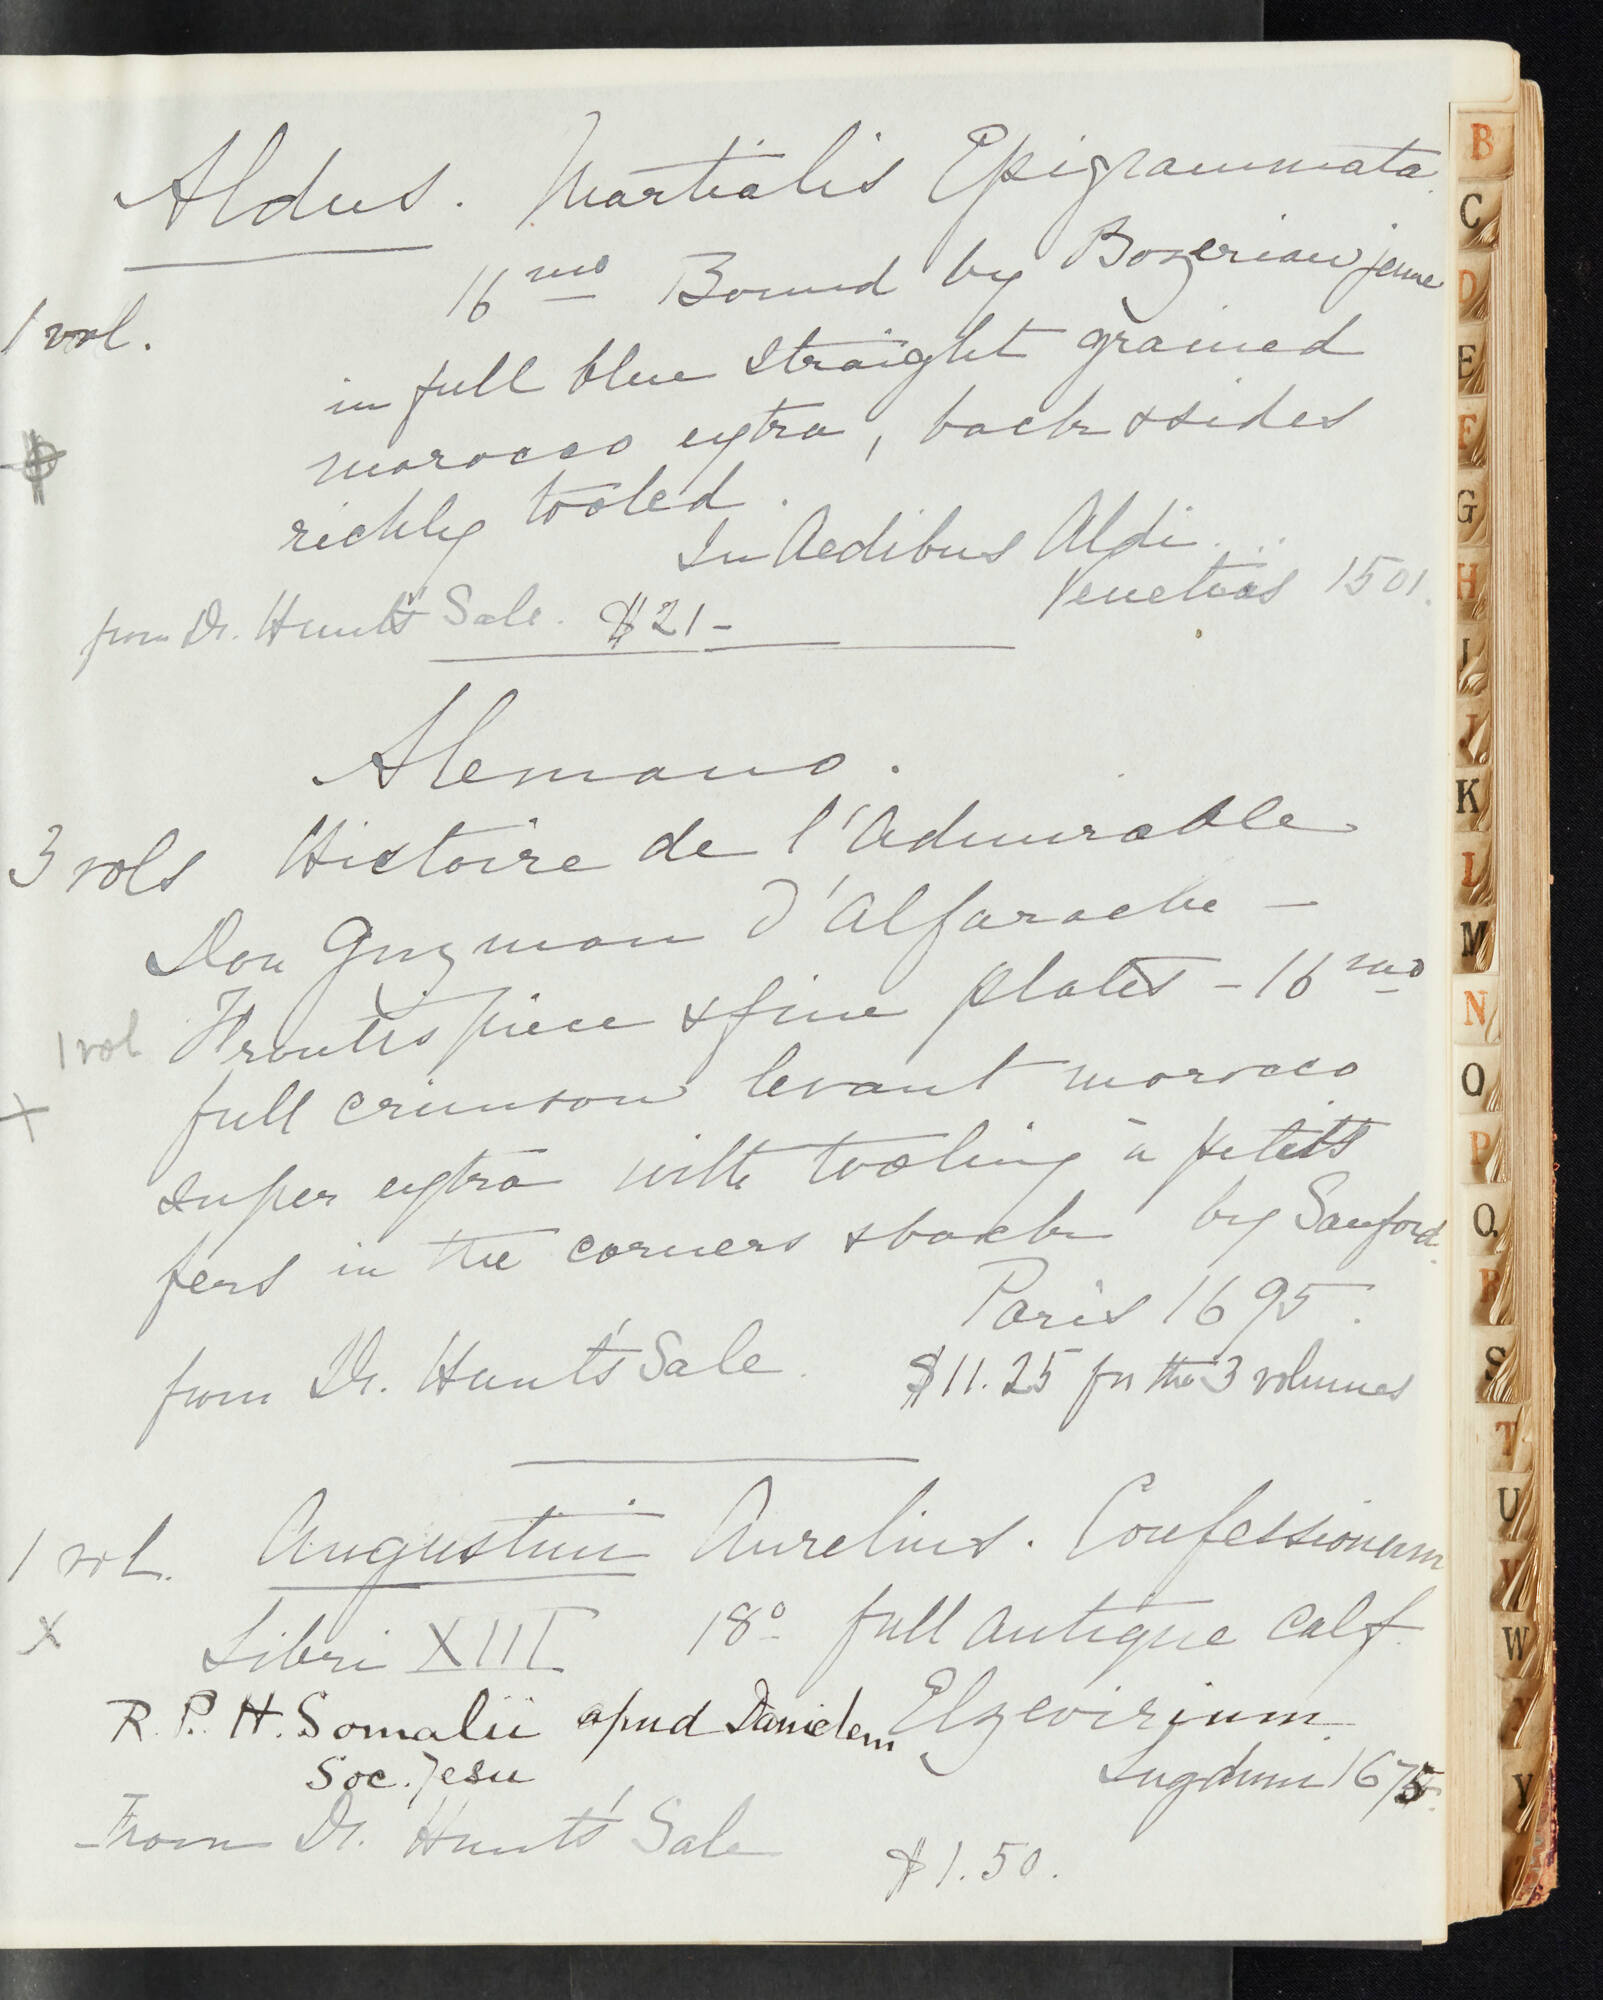 Aldus. Martialis Epigrammata
16mo Bound by Bozerian jeune
1 vol.
in full blue straight grained
morocco extra, back & sides
richly tooled.
In Aedibus Aldi...
Venetiis 1501.
from Dr. Hunt's Sale. $21-
Alemano.
3 vols Histoire de l'Admirable
Don Guzman d'Alfarache -
1 vol Frontispiece & fine plates - 16mo
full crimson levant morocco
super extra with tooling à petits
fers in the corners & back by Sanford.
Paris 1695.
from Dr. Hunt's Sale. $11.25 for the 3 volumes
1 vol. Augustini Aurelius. Confessionum
X
Libri XIII 18o full antique calf.
R. P. H. Somalii apud Danielem Elzevirium
Soc. Jesu
Lugduni 1675.
From Dr. Hunt's Sale $1.50.
B
C
D
E
F
G
H
I
J
K
L
M
N
O
P
Q
R
S
T
U
V
W
X
Y